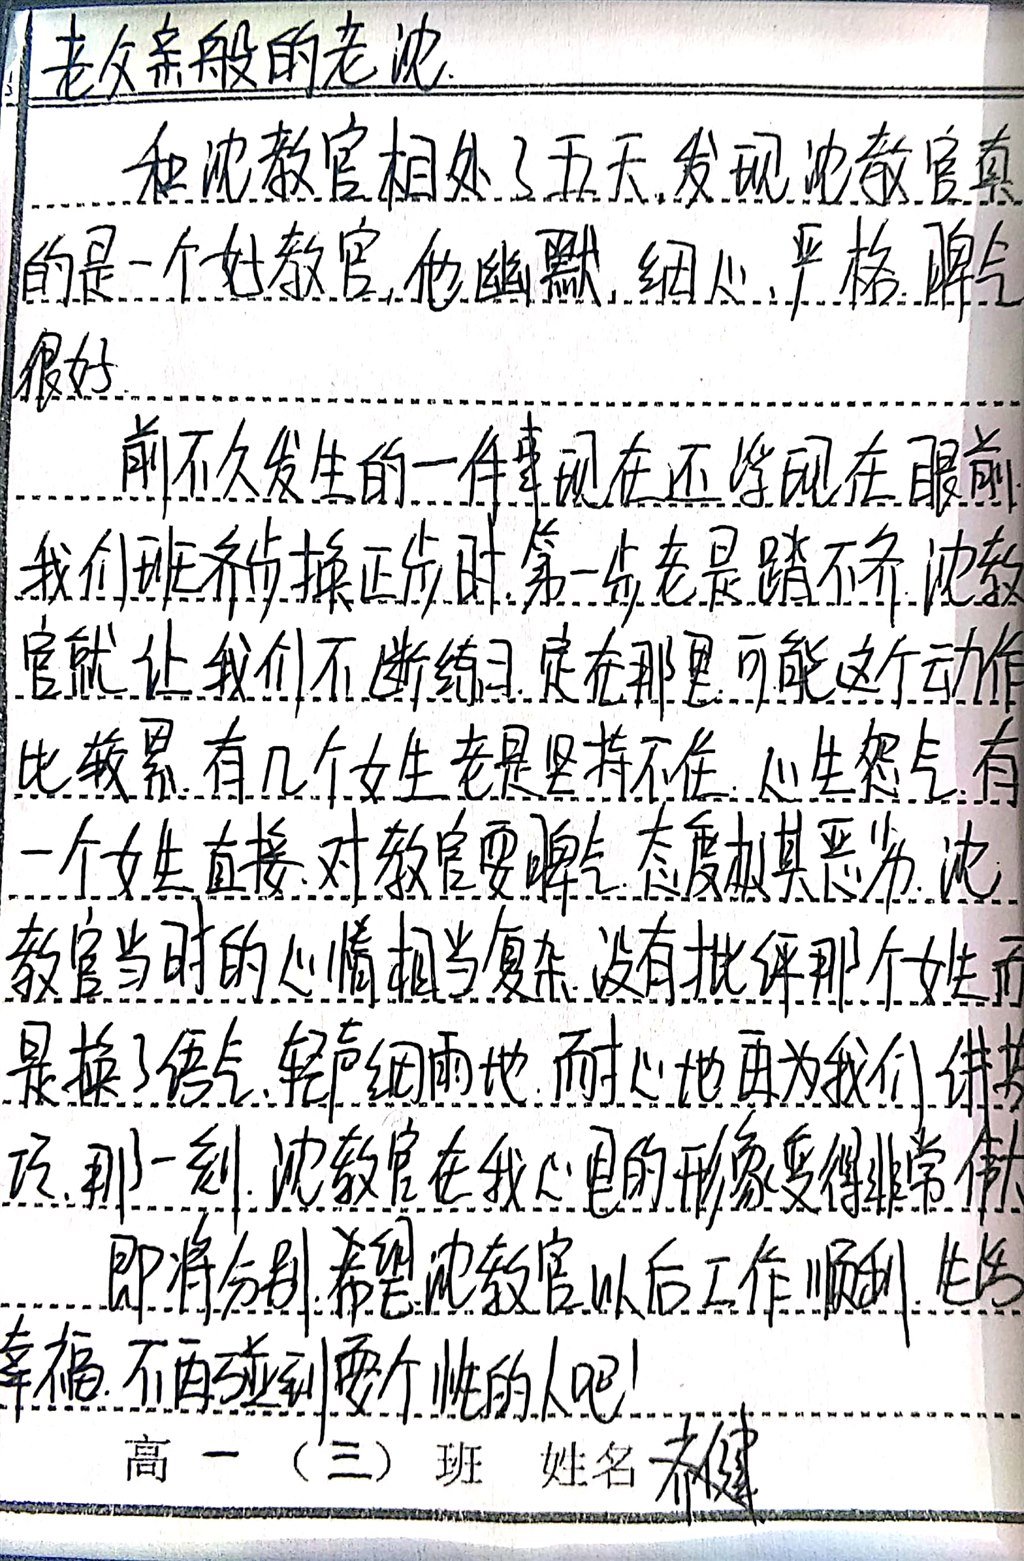 老父亲般的老沈
和沈教官相处了五天,发现沈教官真
的是一个好教官,他幽默,细心,严格.脾气
很好.
前不久发生的一件事现在还浮现在眼前.
我们班齐步换正步时,第一步老是踏不齐.沈教
官就让我们不断练习.定在那里.可能这个动作
比较累.有几个女生老是坚持不住.心生怨气.有
一个女生直接对教官耍脾气.态度极其恶劣.沈
教官当时的心情相当复杂.没有批评那个女生而
是换了语气、轻声细雨地.而耐心地再为我们讲技
巧、那一刻.沈教官在我心里的形象变得非常伟大
即将分别.希望沈教官以后工作顺利.生活
幸福.不再碰到耍个性的人吧!
高一(三)班 姓名